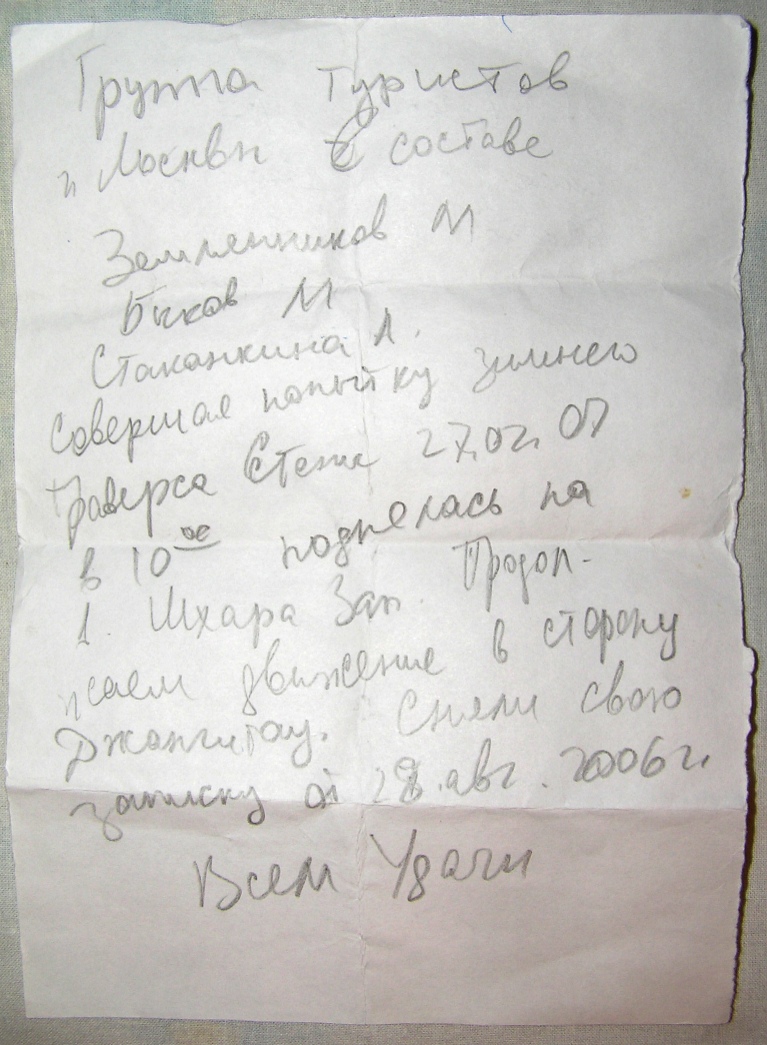 Группа туристов
г Москвы в составе
Земляникиков М
Быков М
Стаканкина А.
Совершая попытку зимнего
траверса Стены 27.02. 07
в 10 00 поднялась на
в. Шхара Зап. Продол-
жаем движение в сторону
Джангитау. Сняли свою
записку от 28. авг. 2006 г.
Всем Удачи